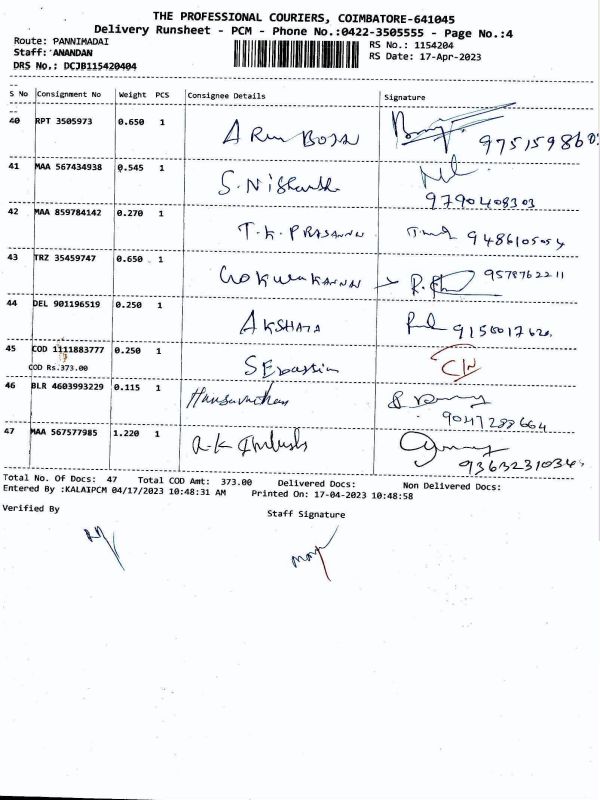 THE PROFESSIONAL COURIERS, COIMBATORE-641045
Delivery Runsheet - PCM - Phone No.:0422-3505555 - Page No.:4
Route: PANNIMADAI
Staff: ANANDAN
DRS No.: DCJB115420404
RS No.: 1154204
RS Date: 17-Apr-2023
S No Consignment No Weight PCS Consignee Details Signature
40 RPT 3505973 0.650 1
41 MAA 567434938 0.545 1 9790408303
42 MAA 859784142 0.270 1 T.K. PRASANNA 9486105054
43 TRZ 35459747 0.650 1 9578762211
44 DEL 901196519 0.250 1 AKSHATA
45 COD 1111883777 0.250 1 SEbastin
COD Rs.373.00
46 BLR 4603993229 0.115 1 9047288664
47 MAA 567577985 1.220 1 9363231034
Total No. Of Docs: 47 Total COD Amt: 373.00 Delivered Docs: Non Delivered Docs:
Entered By :KALAIPCM 04/17/2023 10:48:31 AM Printed On: 17-04-2023 10:48:58
Verified By
Staff Signature